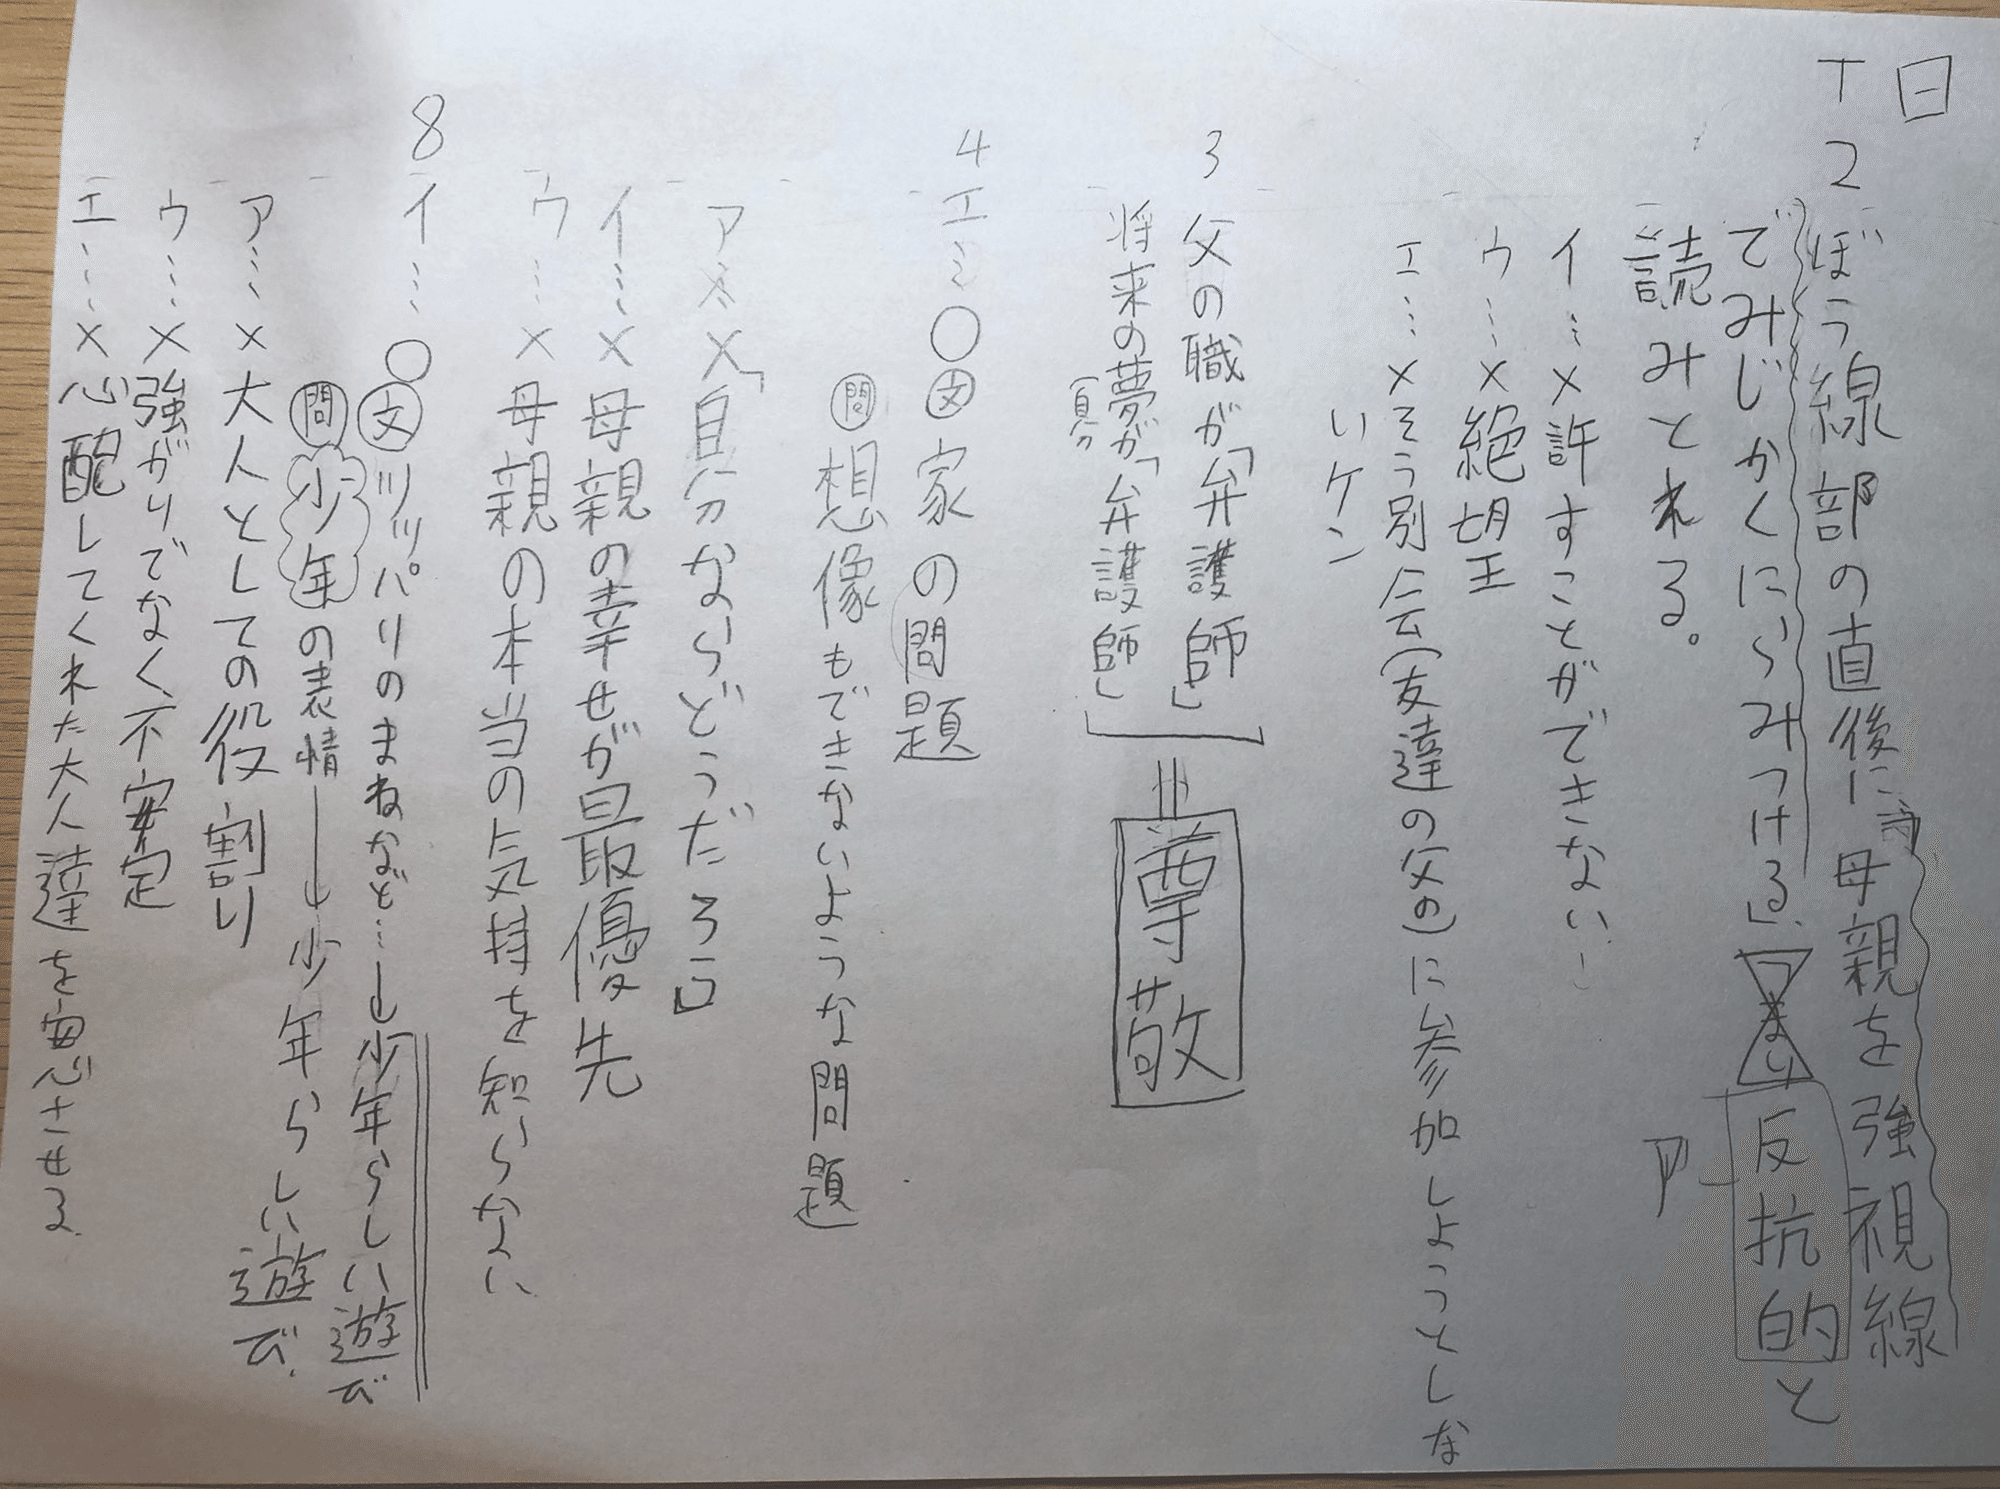 日
T
2 ぼう線部の直後に「母親を強視線
でみじかくにらみつける」、つまり反抗的と
読みとれる。 ア
イ…×許すことができない…
ウ…×絶望
エ…×そう別会(友達の父の)に参加しようとしな
いケン
3 父の職が「弁護師」
将来の夢が「弁護師」
(自分
= 尊敬
4 エ…○ 文 家の問題
問 想像もできないような問題
ア…×「自分ならどうだろう」
イ…×母親の幸せが最優先
ウ…×母親の本当の気持を知らない
8 イ…○ 文 ツッパリのまねなど…→少年らしい遊び
問 少年の表情→少年らしい遊び.
ア…×大人としての役割り
ウ…×強がりでなく、不安定
エ…×心配してくれた大人達を安心させる.